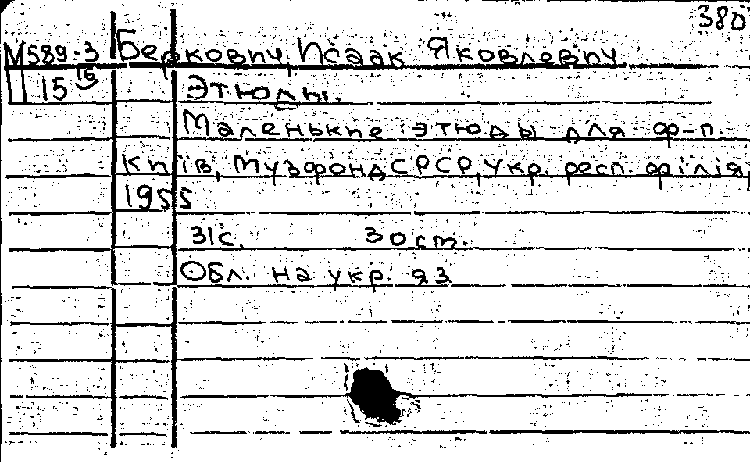 380
М589-3 Беркович, Исаак Яковлевич
15 Этюды.
Маленькие этюды для ф-п.
Київ, Музфонд СРСР, Укр. респ. філія,
1955
31с. 30 ст.
Обл. на укр. яз